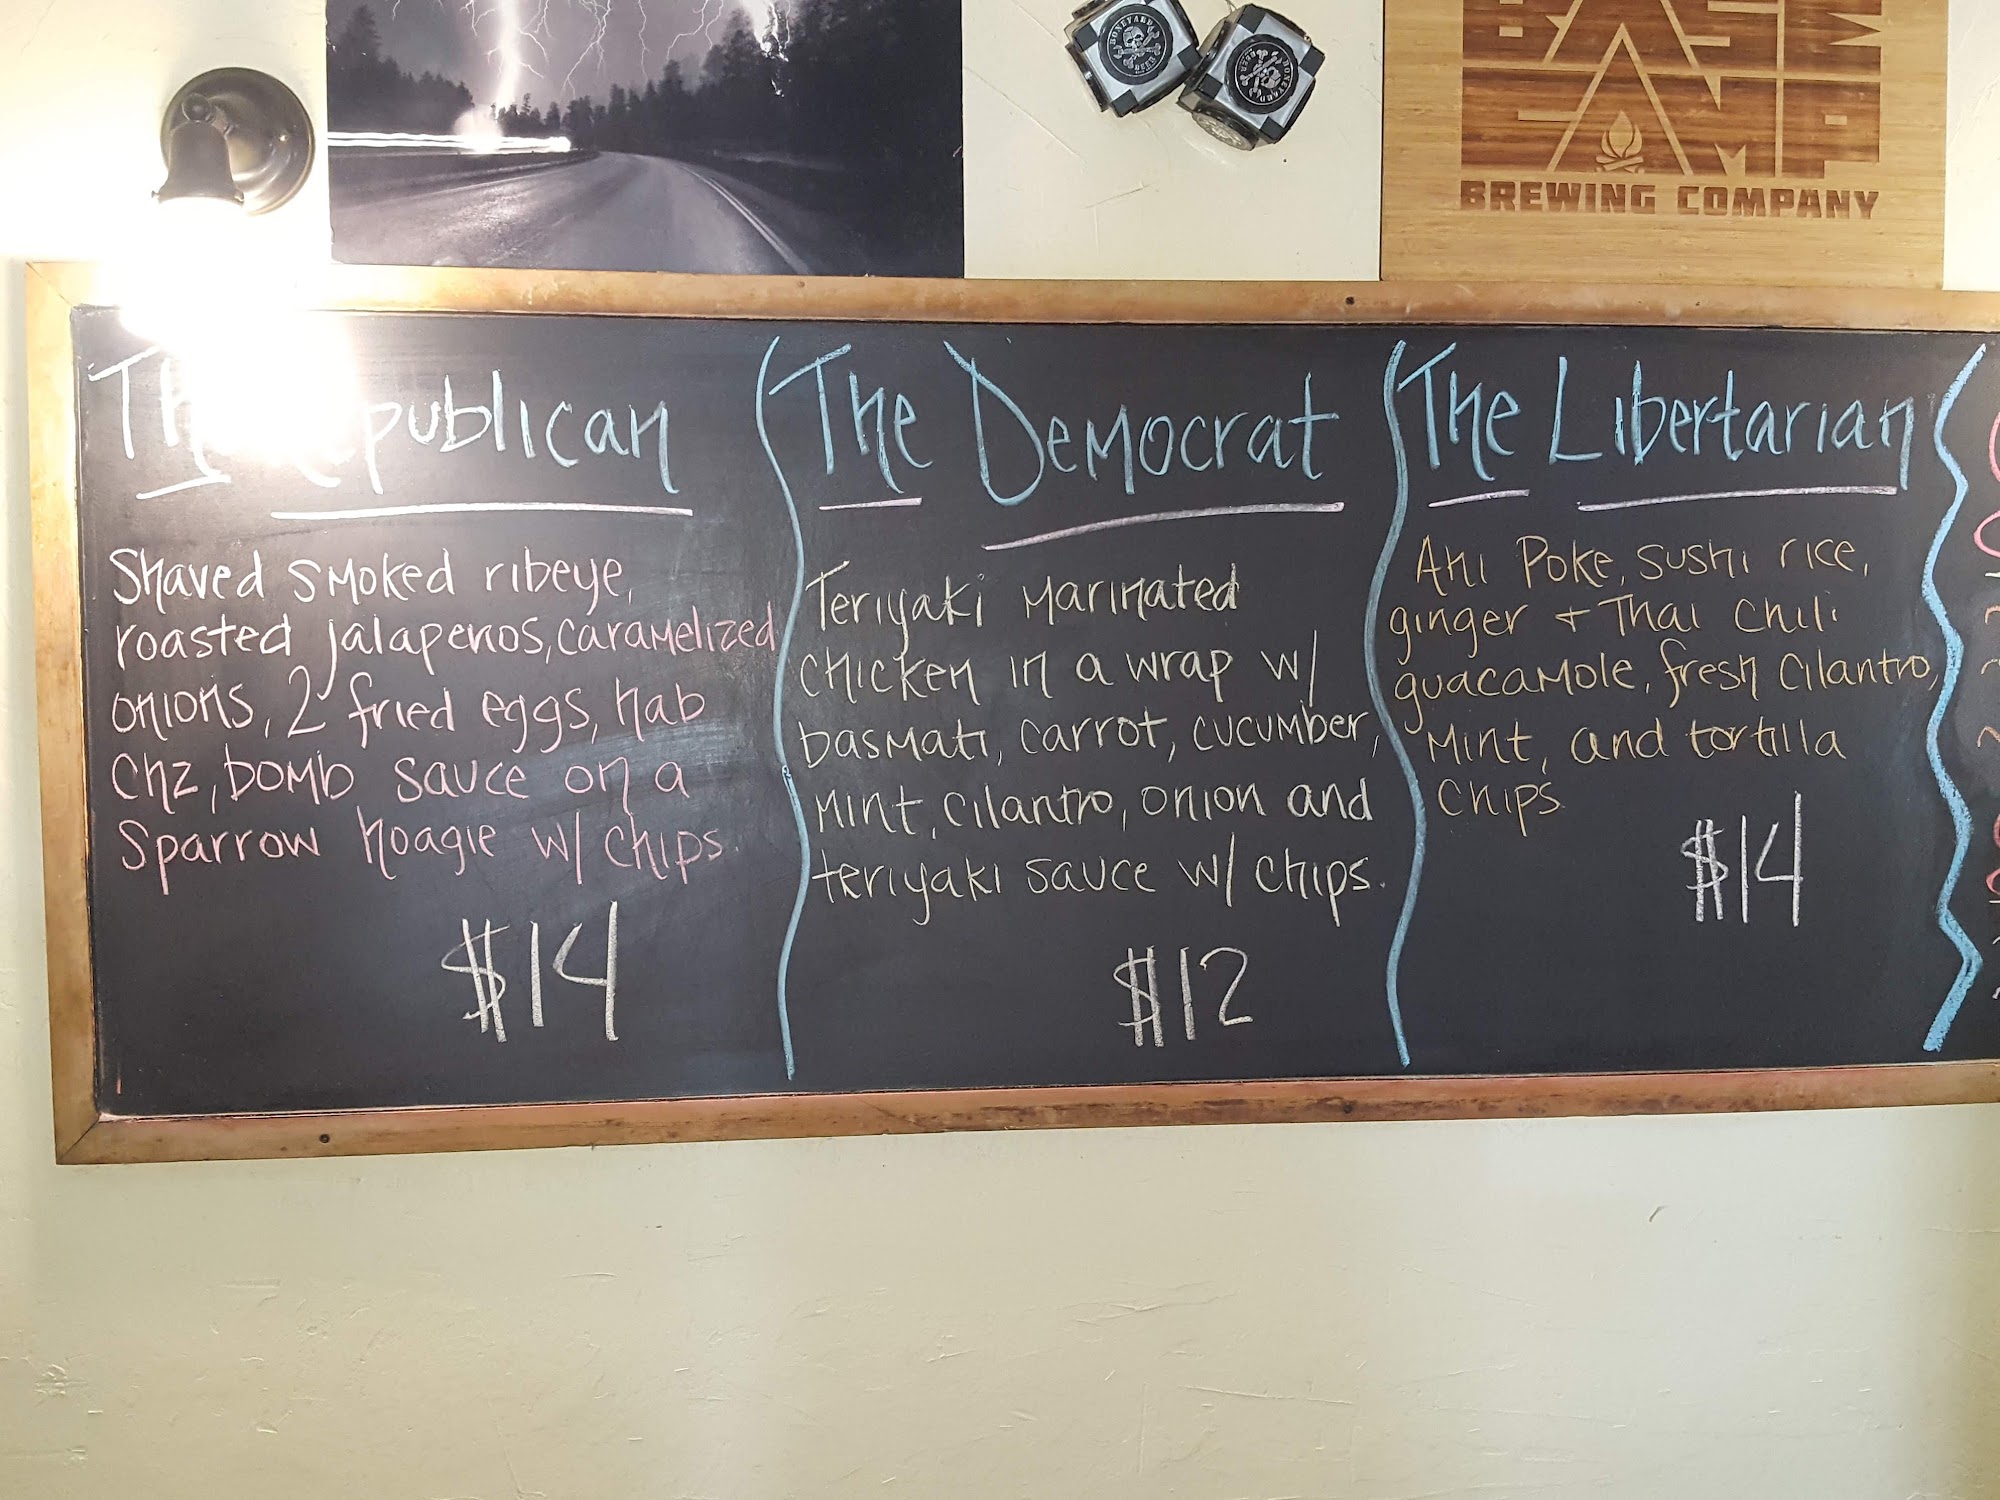 BONEYARD
BEER
BONEYARD
BEER
BASE
CAMP
BREWING COMPANY
The Republican
Shaved smoked ribeye,
roasted jalapenos, caramelized
onions, 2 fried eggs, hab
chz, bomb sauce on a
Sparrow hoagie w/ chips.
$14
The Democrat
Teriyaki marinated
chicken in a wrap w/
basmati, carrot, cucumber,
mint, cilantro, onion and
teriyaki sauce w/ chips.
$12
The Libertarian
Ahi Poke, sushi rice,
ginger + Thai chili
guacamole, fresh cilantro,
mint, and tortilla
chips.
$14